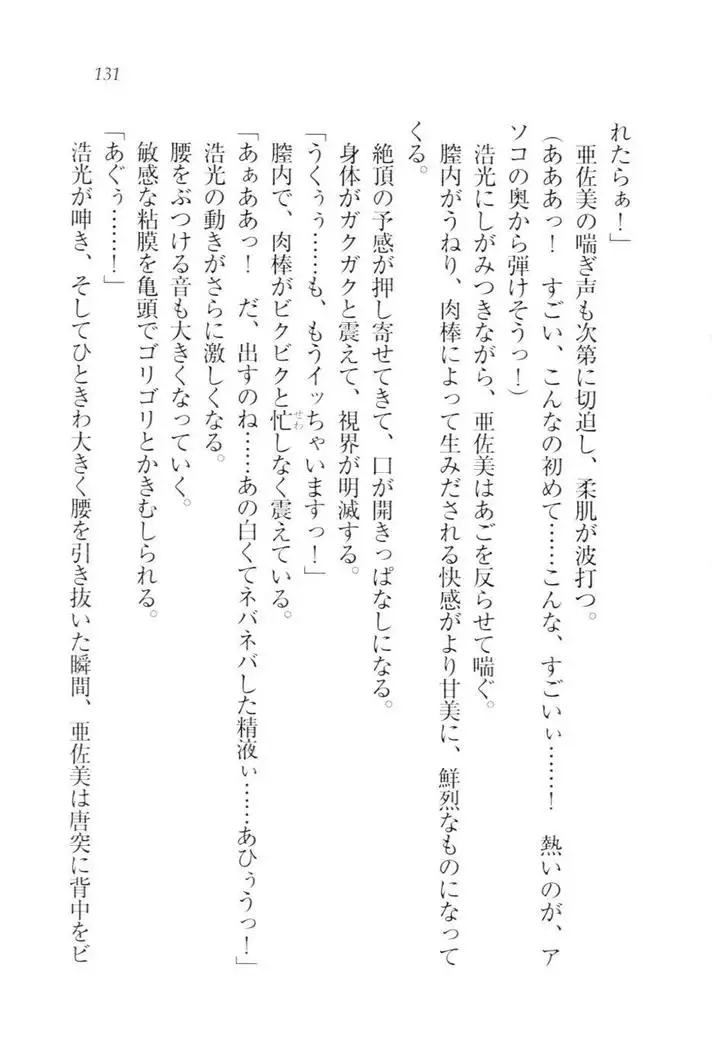 131
れたらぁ！」
　亜佐美の喘ぎ声も次第に切迫し、柔肌が波打つ。
（あああっ！　すごい、こんなの初めて……こんな、すごいぃ……！　熱いのが、ア
ソコの奥から弾けそうっ！）
　浩光にしがみつきながら、亜佐美はあごを反らせて喘ぐ。
　膣内がうねり、肉棒によって生みだされる快感がより甘美に、鮮烈なものになって
くる。
　絶頂の予感が押し寄せてきて、口が開きっぱなしになる。
　身体がガクガクと震えて、視界が明滅する。
「うくぅぅ……も、もうイッちゃいますっ！」
　膣内で、肉棒がビクビクと忙せわしなく震えている。
「あぁああっ！　だ、出すのね……あの白くてネバネバした精液ぃ……あひぅうっ！」
　浩光の動きがさらに激しくなる。
　腰をぶつける音も大きくなっていく。
　敏感な粘膜を亀頭でゴリゴリとかきむしられる。
「あぐぅ……！」
　浩光が呻き、そしてひときわ大きく腰を引き抜いた瞬間、亜佐美は唐突に背中をビ